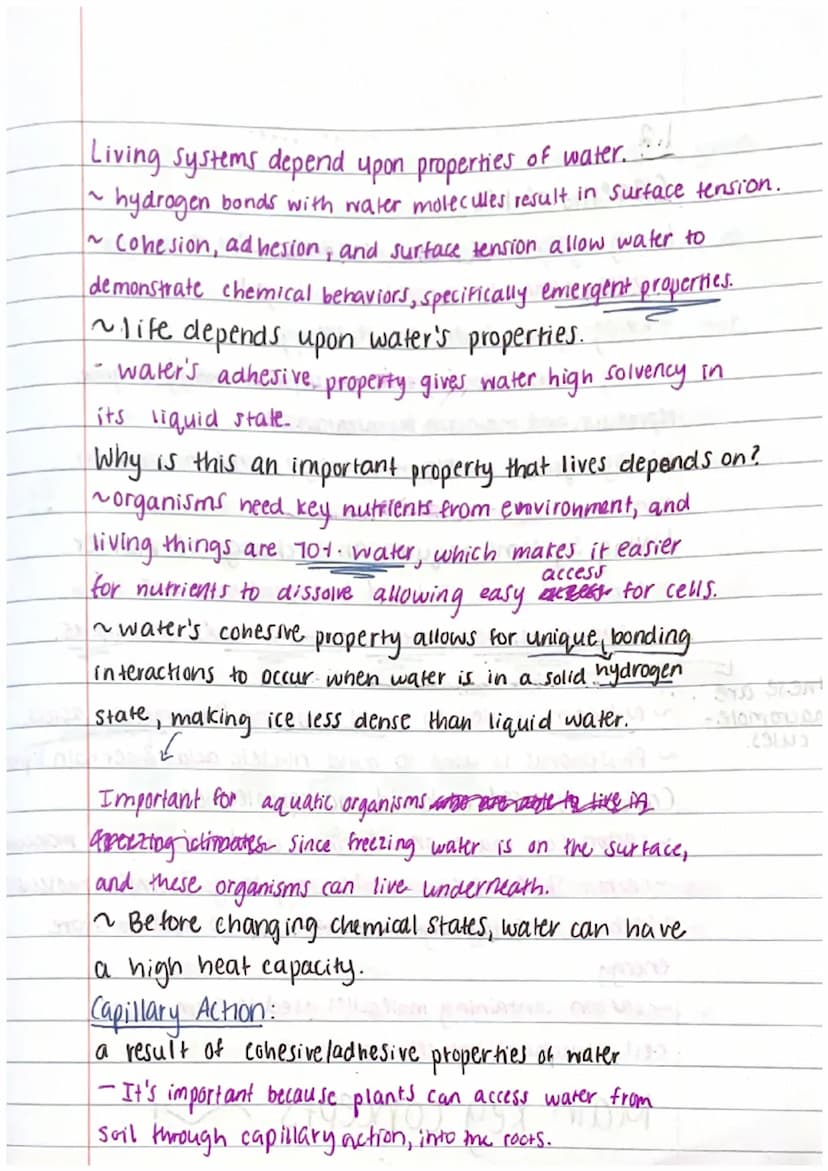 Living systems depend upon properties of water.
~ hydrogen bonds with water molecules result in surface tension.
~ Cohesion, adhesion, and surface tension allow water to
demonstrate chemical behaviors, specifically emergent properties.
~ life depends upon water's properties.
- water's adhesive property gives water high solvency in
its liquid state.
Why is this an important property that lives depends on?
~ organisms need key nutrients from environment, and
living things are 70% water, which makes it easier
for nutrients to dissolve allowing easy access for cells.
~ water's cohesive property allows for unique bonding
interactions to occur when water is in a solid hydrogen
state, making ice less dense than liquid water.
Important for aquatic organisms
since freezing water is on the surface,
and these organisms can live underneath.
~ Before changing chemical states, water can have
a high heat capacity.
Capillary Action:
a result of cohesive/adhesive properties of water
- It's important because plants can access water from
soil through capillary action, into the roots.